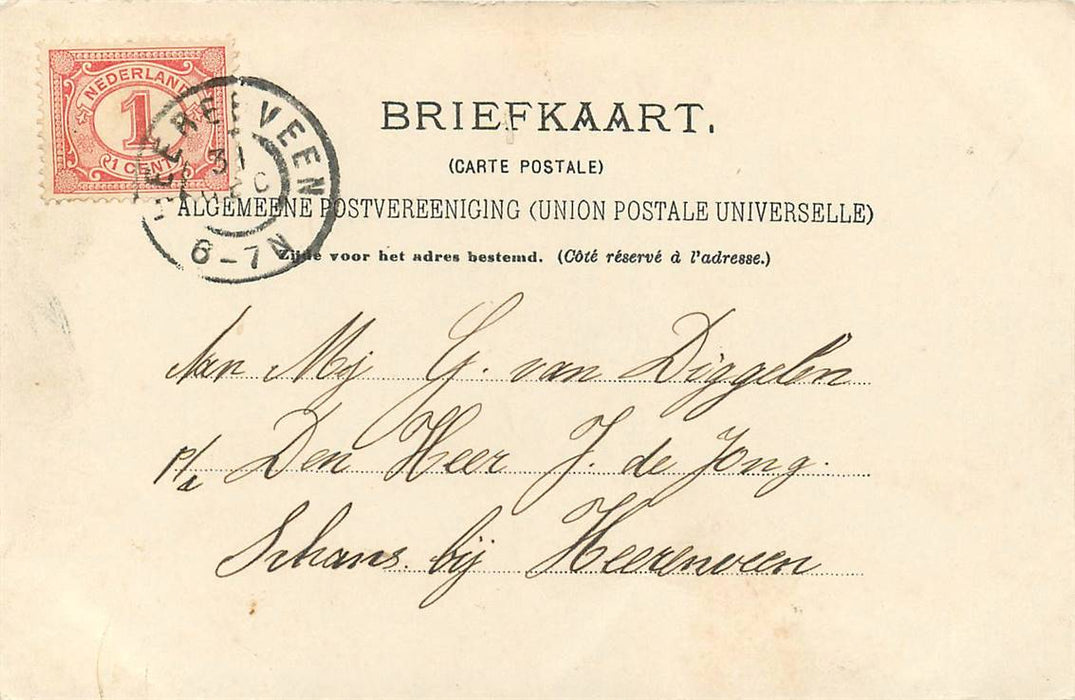 NEDERLAND
1
1 CENT
HEERENVEEN
31
DEC
6-7N
BRIEFKAART.
(CARTE POSTALE)
ALGEMEENE POSTVEREENIGING (UNION POSTALE UNIVERSELLE)
Zijde voor het adres bestemd. (Côté réservé à l'adresse.)
Aan Mej G. van Diggelen
p/a Den Heer J. de Jong.
Schans. bij Heerenveen